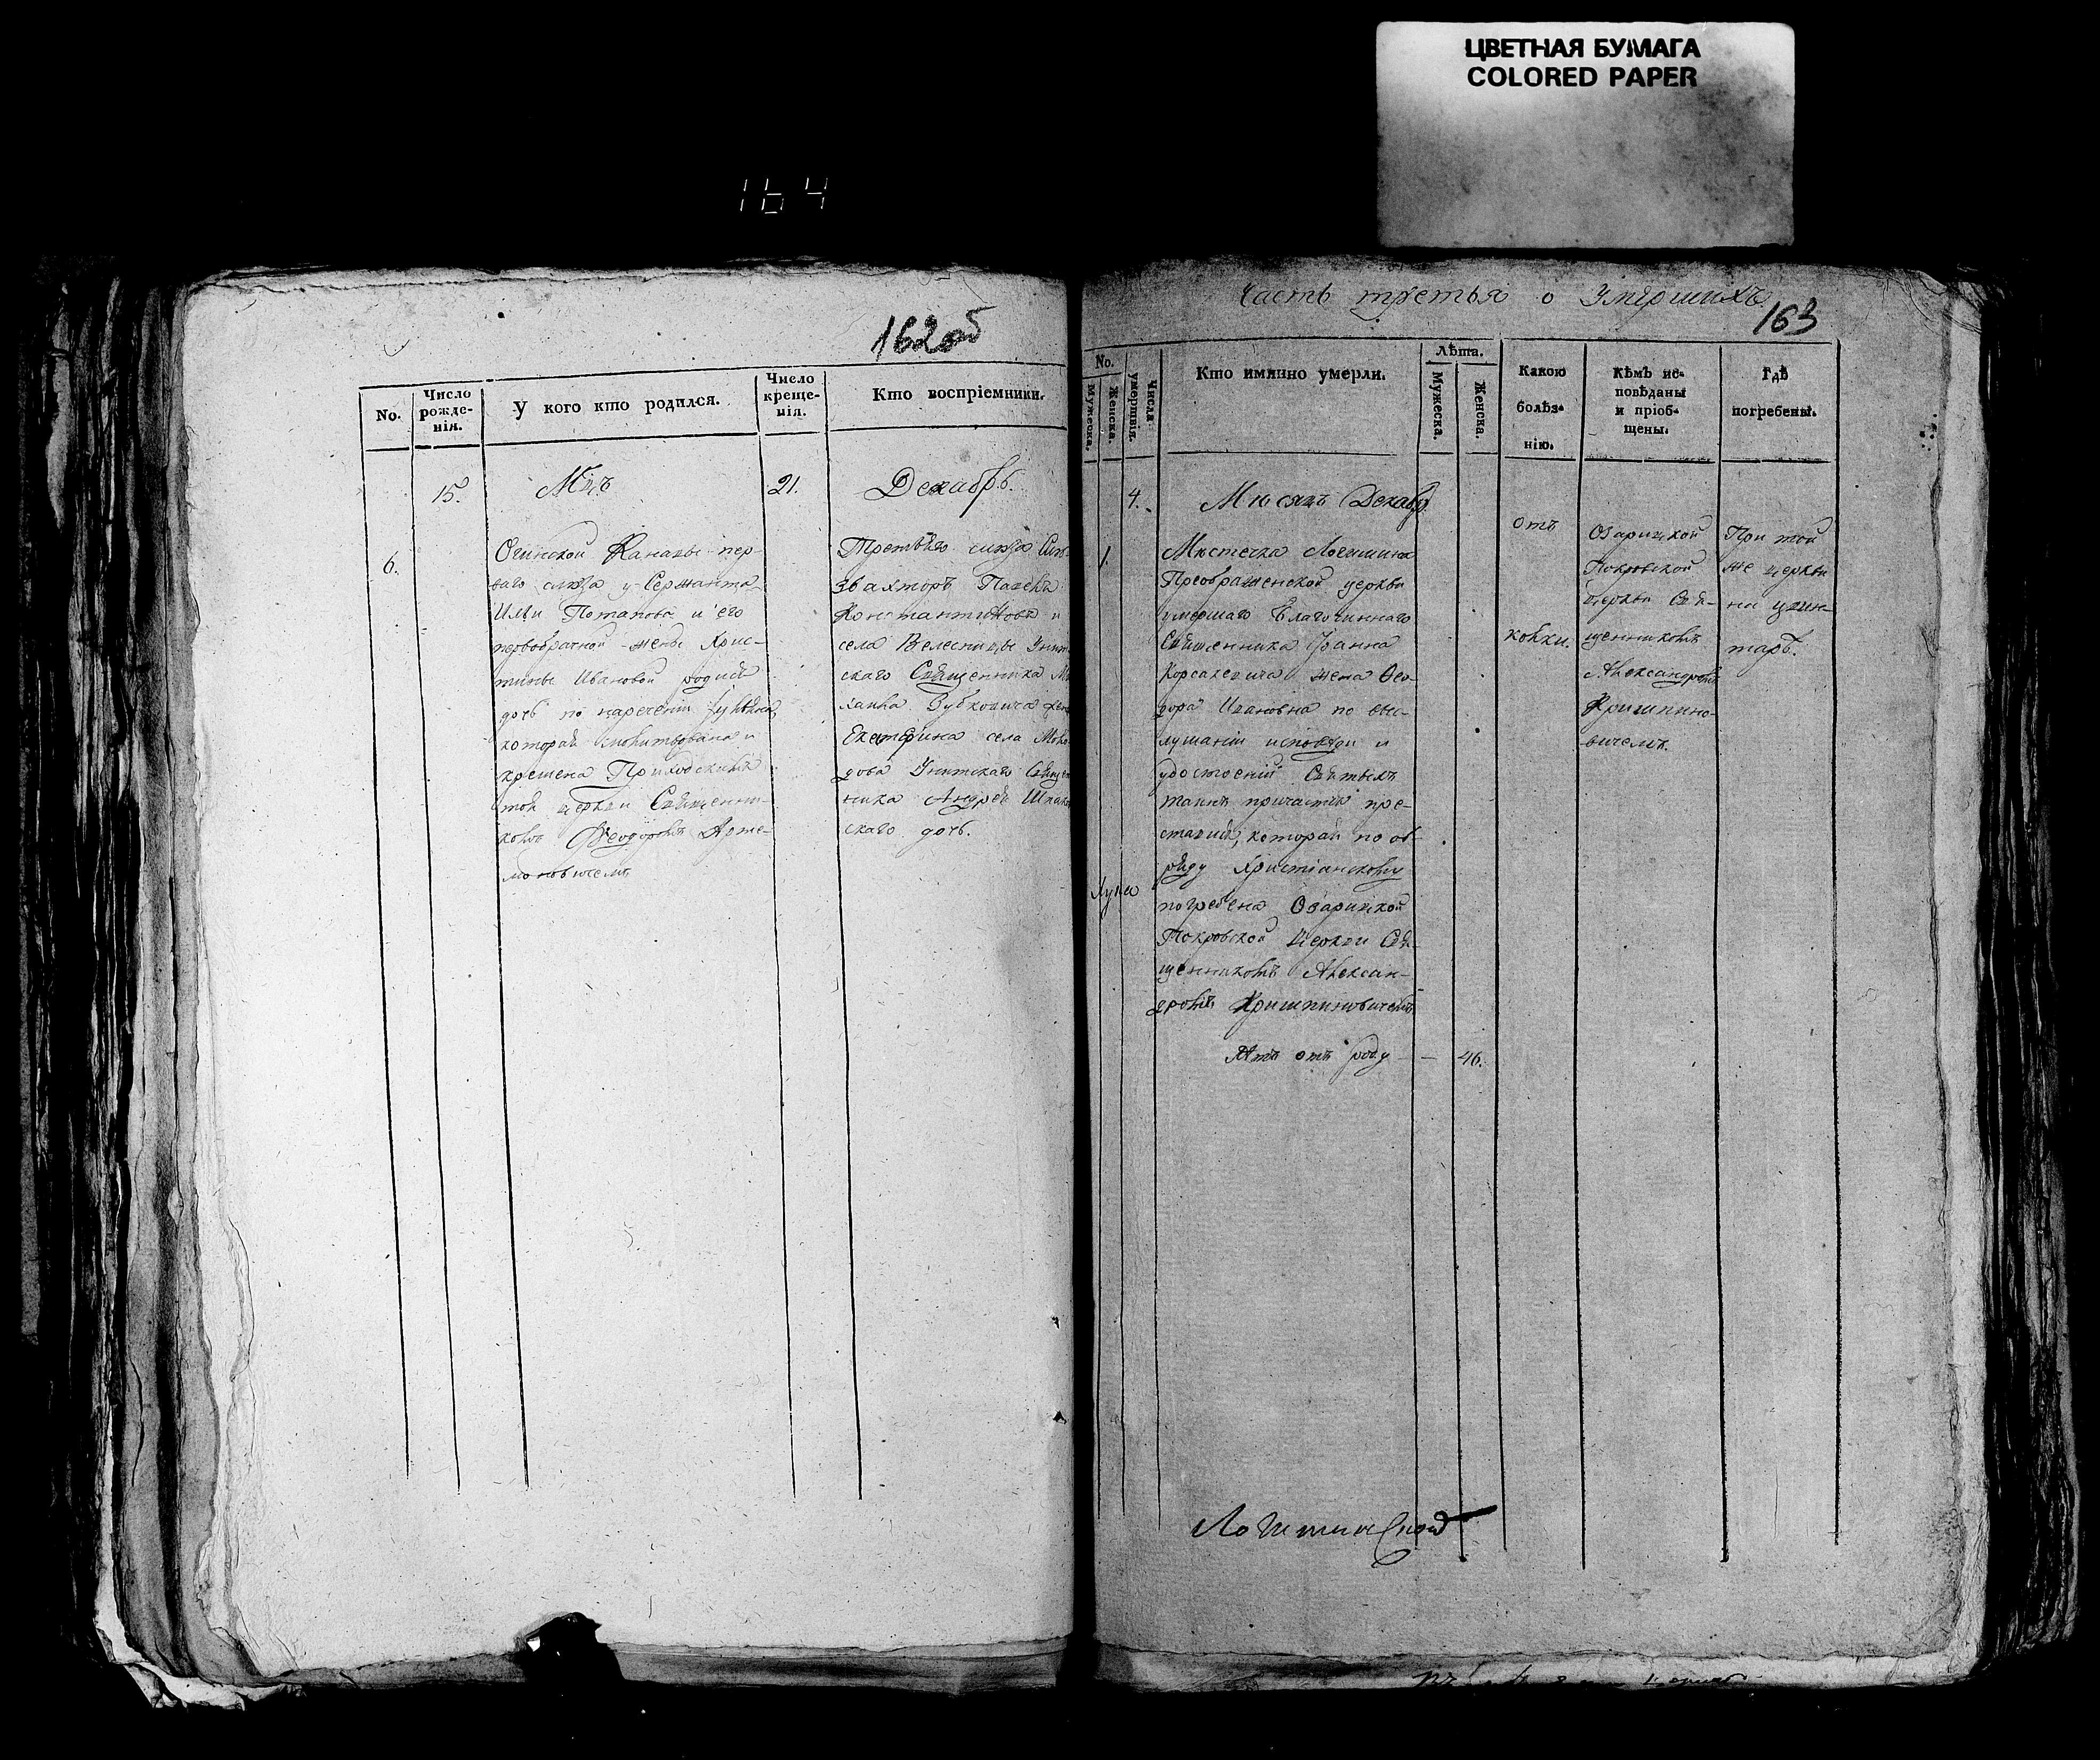 ЦВЕТНАЯ БУМАГА
COLORED PAPER
164
162об
No.
Число рожде-нія.
У кого кто родился.
Число креще-нія.
Кто воспріемники.
15.
Мцъ
21.
Декабрь.
6.
Огинской Канавы пер-
ваго слюза у Сержанта
Ильи Потапова и его
первобрачной жены Хрис-
тины Ивановой родися
дочь по наречении
которая молитвована и
крещена Приходскимъ
той церкви Священни-
комъ Феодоромъ Арте-
моновичемъ
Третьяго слюза
Павелъ
Константиновъ и
села Велесницы Унит
скаго Священника Ми
хаила Зубковича
Екатерина села Моко
дова Унитскаго Священ
ника Андрея
скаго дочь.
Часть третья о Умершихъ
163
No.
Мужеска.
Женска.
Числа умершія.
Кто имянно умерли.
Лѣта.
Мужеска.
Женска.
Какою болѣз-нію.
Кѣмъ ис-повѣданы и пріоб-щены.
Гдѣ погребены.
4.
Мѣсяцъ Декабрь
1.
Мѣстечка Логишина
Преображенской церкви
умершаго Благочиннаго
Священника Іоанна
Корсакевича жена Ѳео-
дора Ивановна по выс-
лушаніи исповѣди и
удостоеніи Святыхъ
таинъ причастія пре-
ставися, которая по об-
ряду Христіанскому
погребена Озарицкой
Покровской Церкви Свя-
щенникомъ Алексан-
дромъ Кришпиновичемъ
Лѣтъ отъ роду — 46.
отъ
колки.
Озарицкой
Покровской
Церкви Свя-
щенникомъ
Александромъ
Кришпино-
вичемъ.
При той
же церкви
на цвин-
тарѣ.